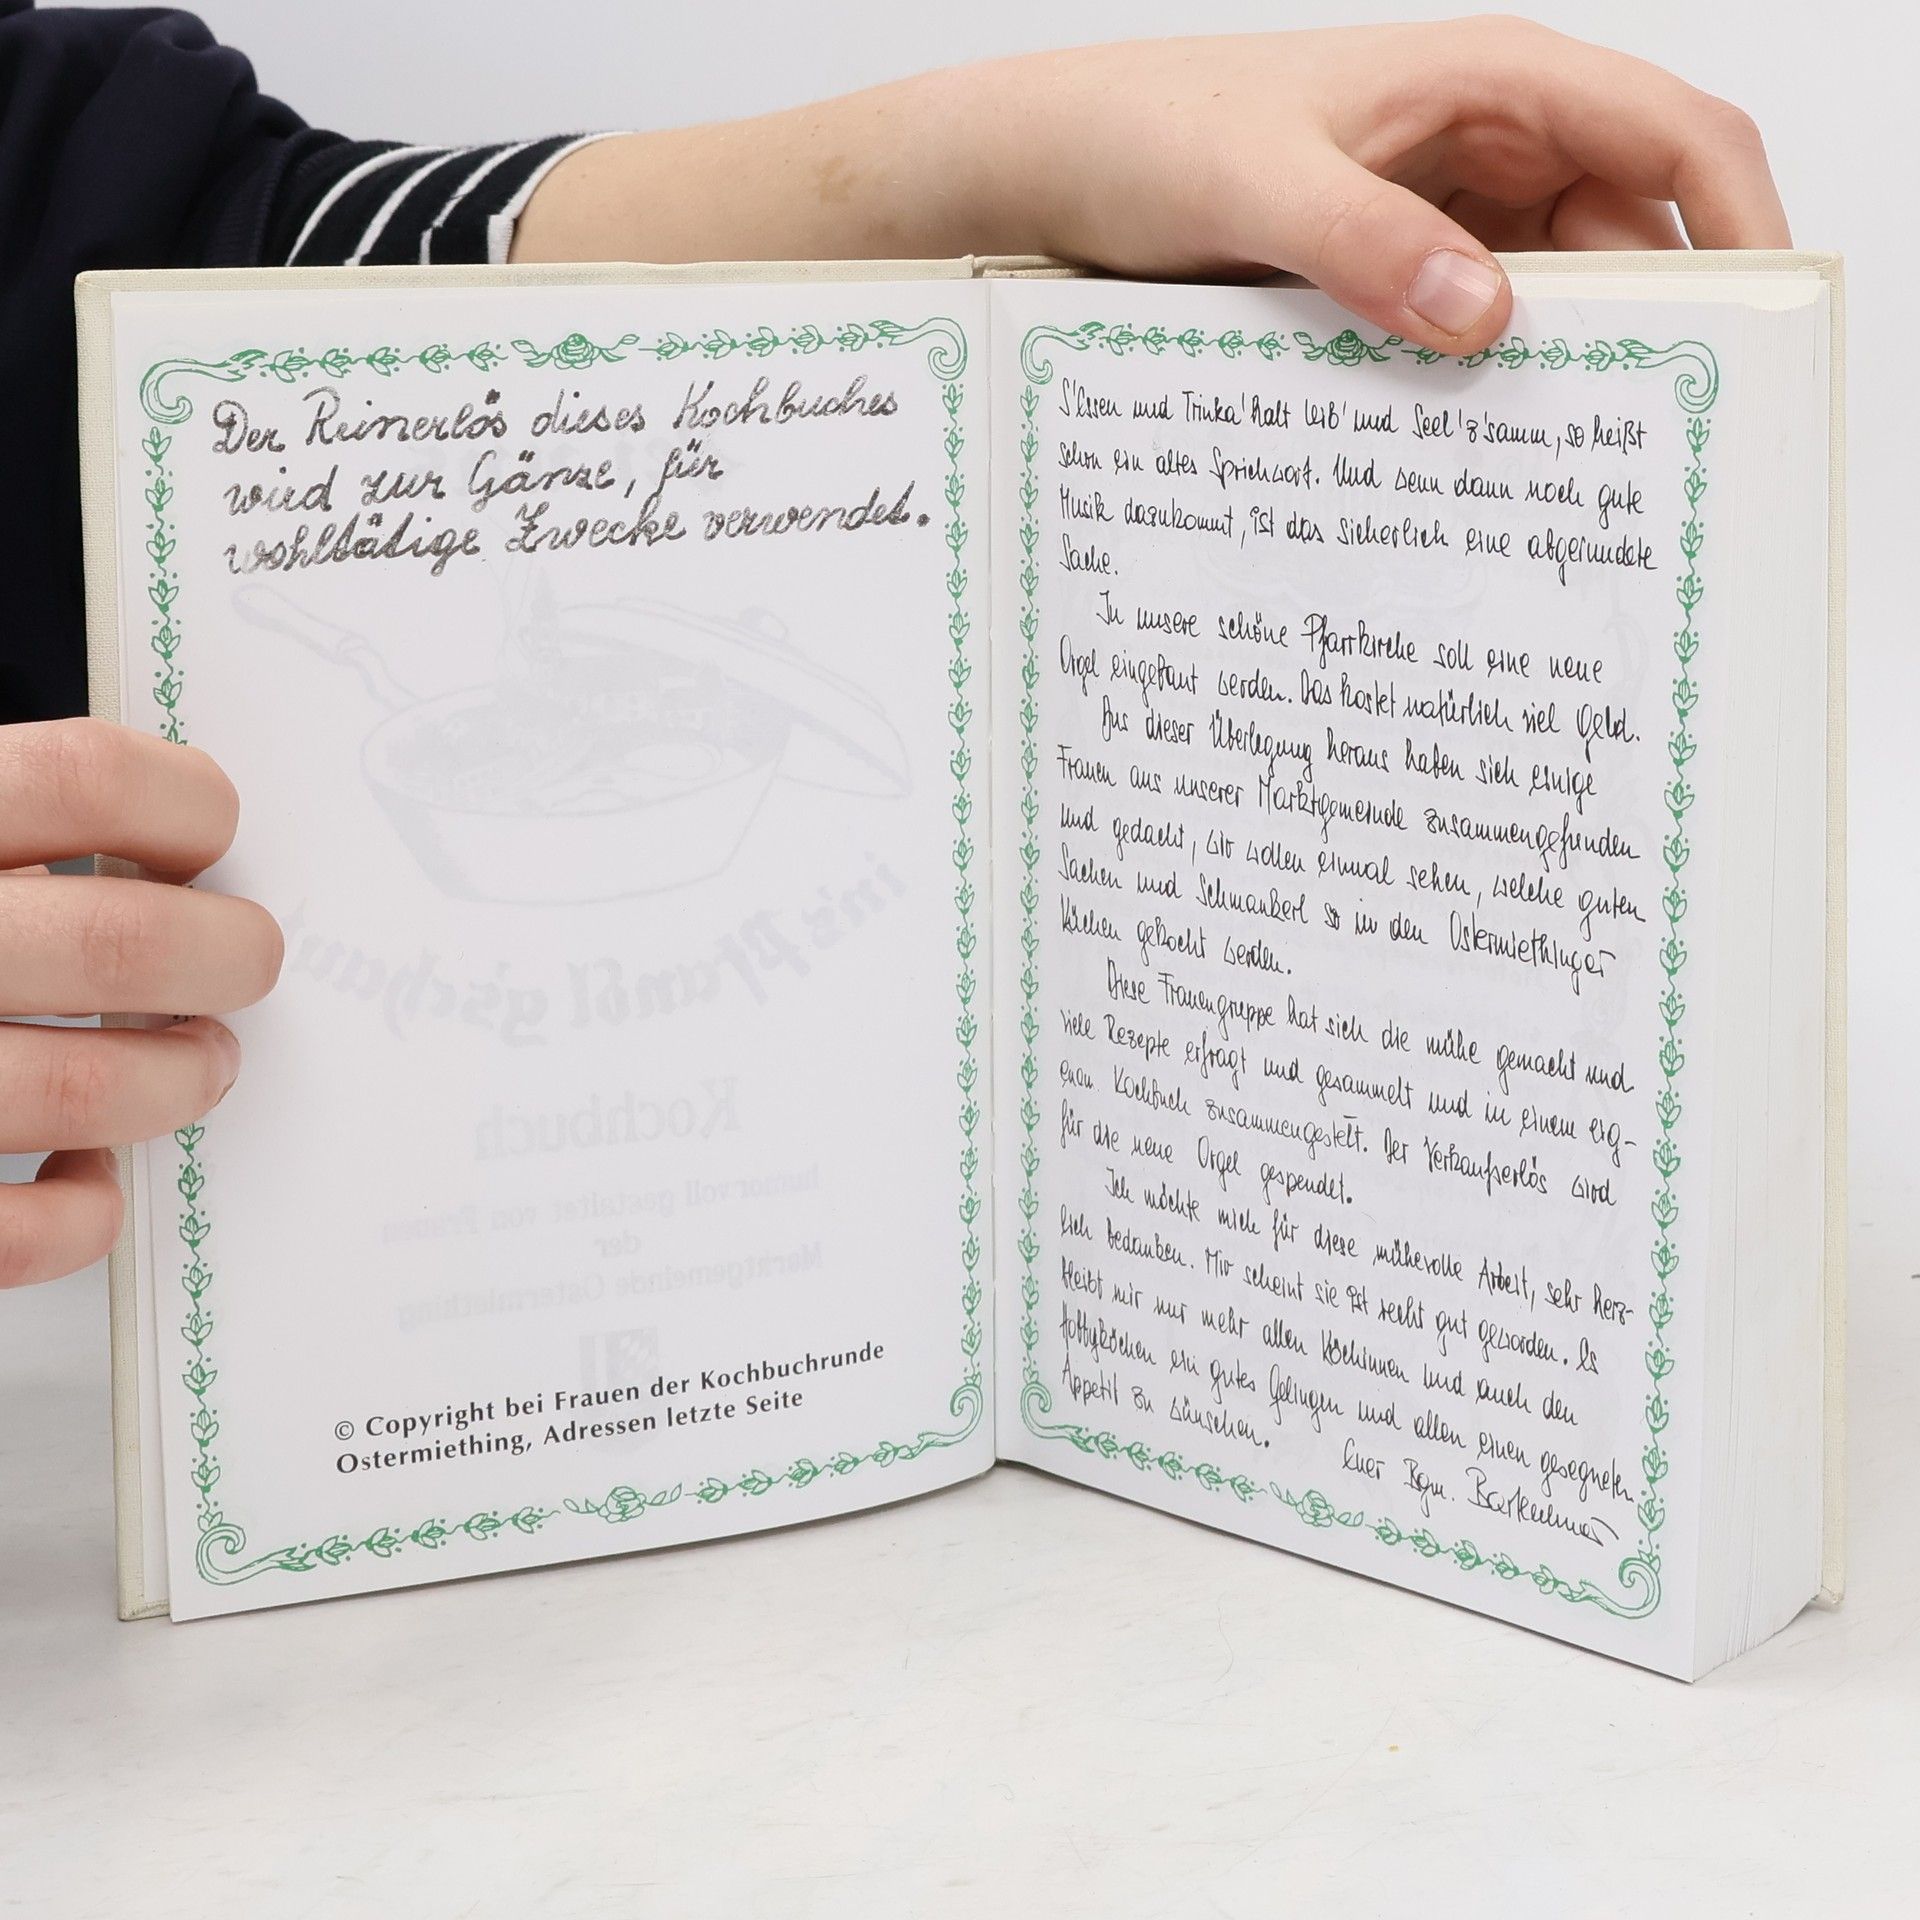 Der Reinerlös dieses Kochbuches
wird zur Gänze, für
wohltätige Zwecke verwendet.
in's Pfandl g'schaut
Kochbuch
humorvoll gestaltet von Frauen
der
Marktgemeinde Ostermiething
© Copyright bei Frauen der Kochbuchrunde
Ostermiething, Adressen letzte Seite
S'Essen und Trinka' halt Leib' und Seel' z'samm, so heißt
schon ein altes Sprichwort. Und wenn dann noch gute
Musik dazukommt, ist das sicherlich eine abgerundete
Sache.
In unsere schöne Pfarrkirche soll eine neue
Orgel eingebaut werden. Das kostet natürlich viel Geld.
Aus dieser Überlegung heraus haben sich einige
Frauen aus unserer Marktgemeinde zusammengefunden
und gedacht, wir wollen einmal sehen, welche guten
Sachen und Schmankerl so in den Ostermiethinger
Küchen gekocht werden.
Diese Frauengruppe hat sich die mühe gemacht und
viele Rezepte erfragt und gesammelt und in einem eig-
enen Kochbuch zusammengestellt. Der Verkaufserlös wird
für die neue Orgel gespendet.
Ich möchte mich für diese mühevolle Arbeit, sehr herz-
lich bedanken. Mir scheint sie ist recht gut geworden. Es
bleibt mir nur mehr allen Köchinnen und auch den
Hobbyköchen ein gutes Gelingen und allen einen gesegneten
Appetit zu wünschen.
Euer Bgm.